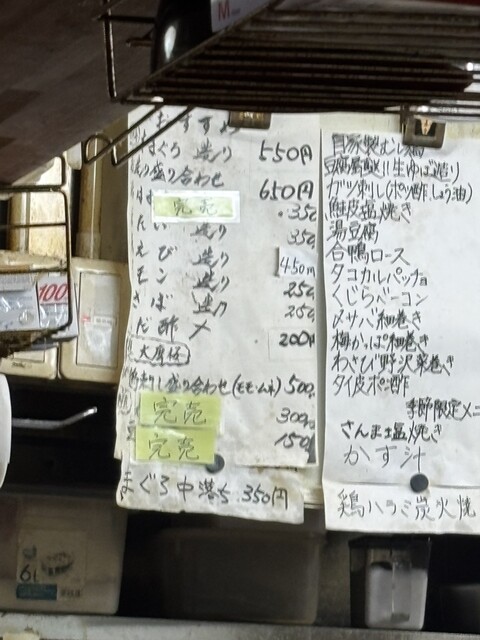 おすすめ
まぐろ 造り 550円
造り盛り合わせ 650円
完売 350
たい 造り 350
えび 造り 450円
造り 250
さば 造り 250
だ酢〆 200円
大唐杯
盛り合わせ(モモ・ムネ) 500
完売 300
完売 150
まぐろ中落ち 350円
自家製
生ゆば造り
ガツ刺し(ポン酢、しょう油)
鮭皮塩焼き
湯豆腐
合鴨ロース
タコカルパッチョ
くじらベーコン
〆サバ細巻き
梅かっぱ細巻き
わさび野沢菜巻き
タイ皮ポン酢
季節限定メニ
さんま塩焼き
かす汁
鶏ハラミ炭火焼
100
6L
M